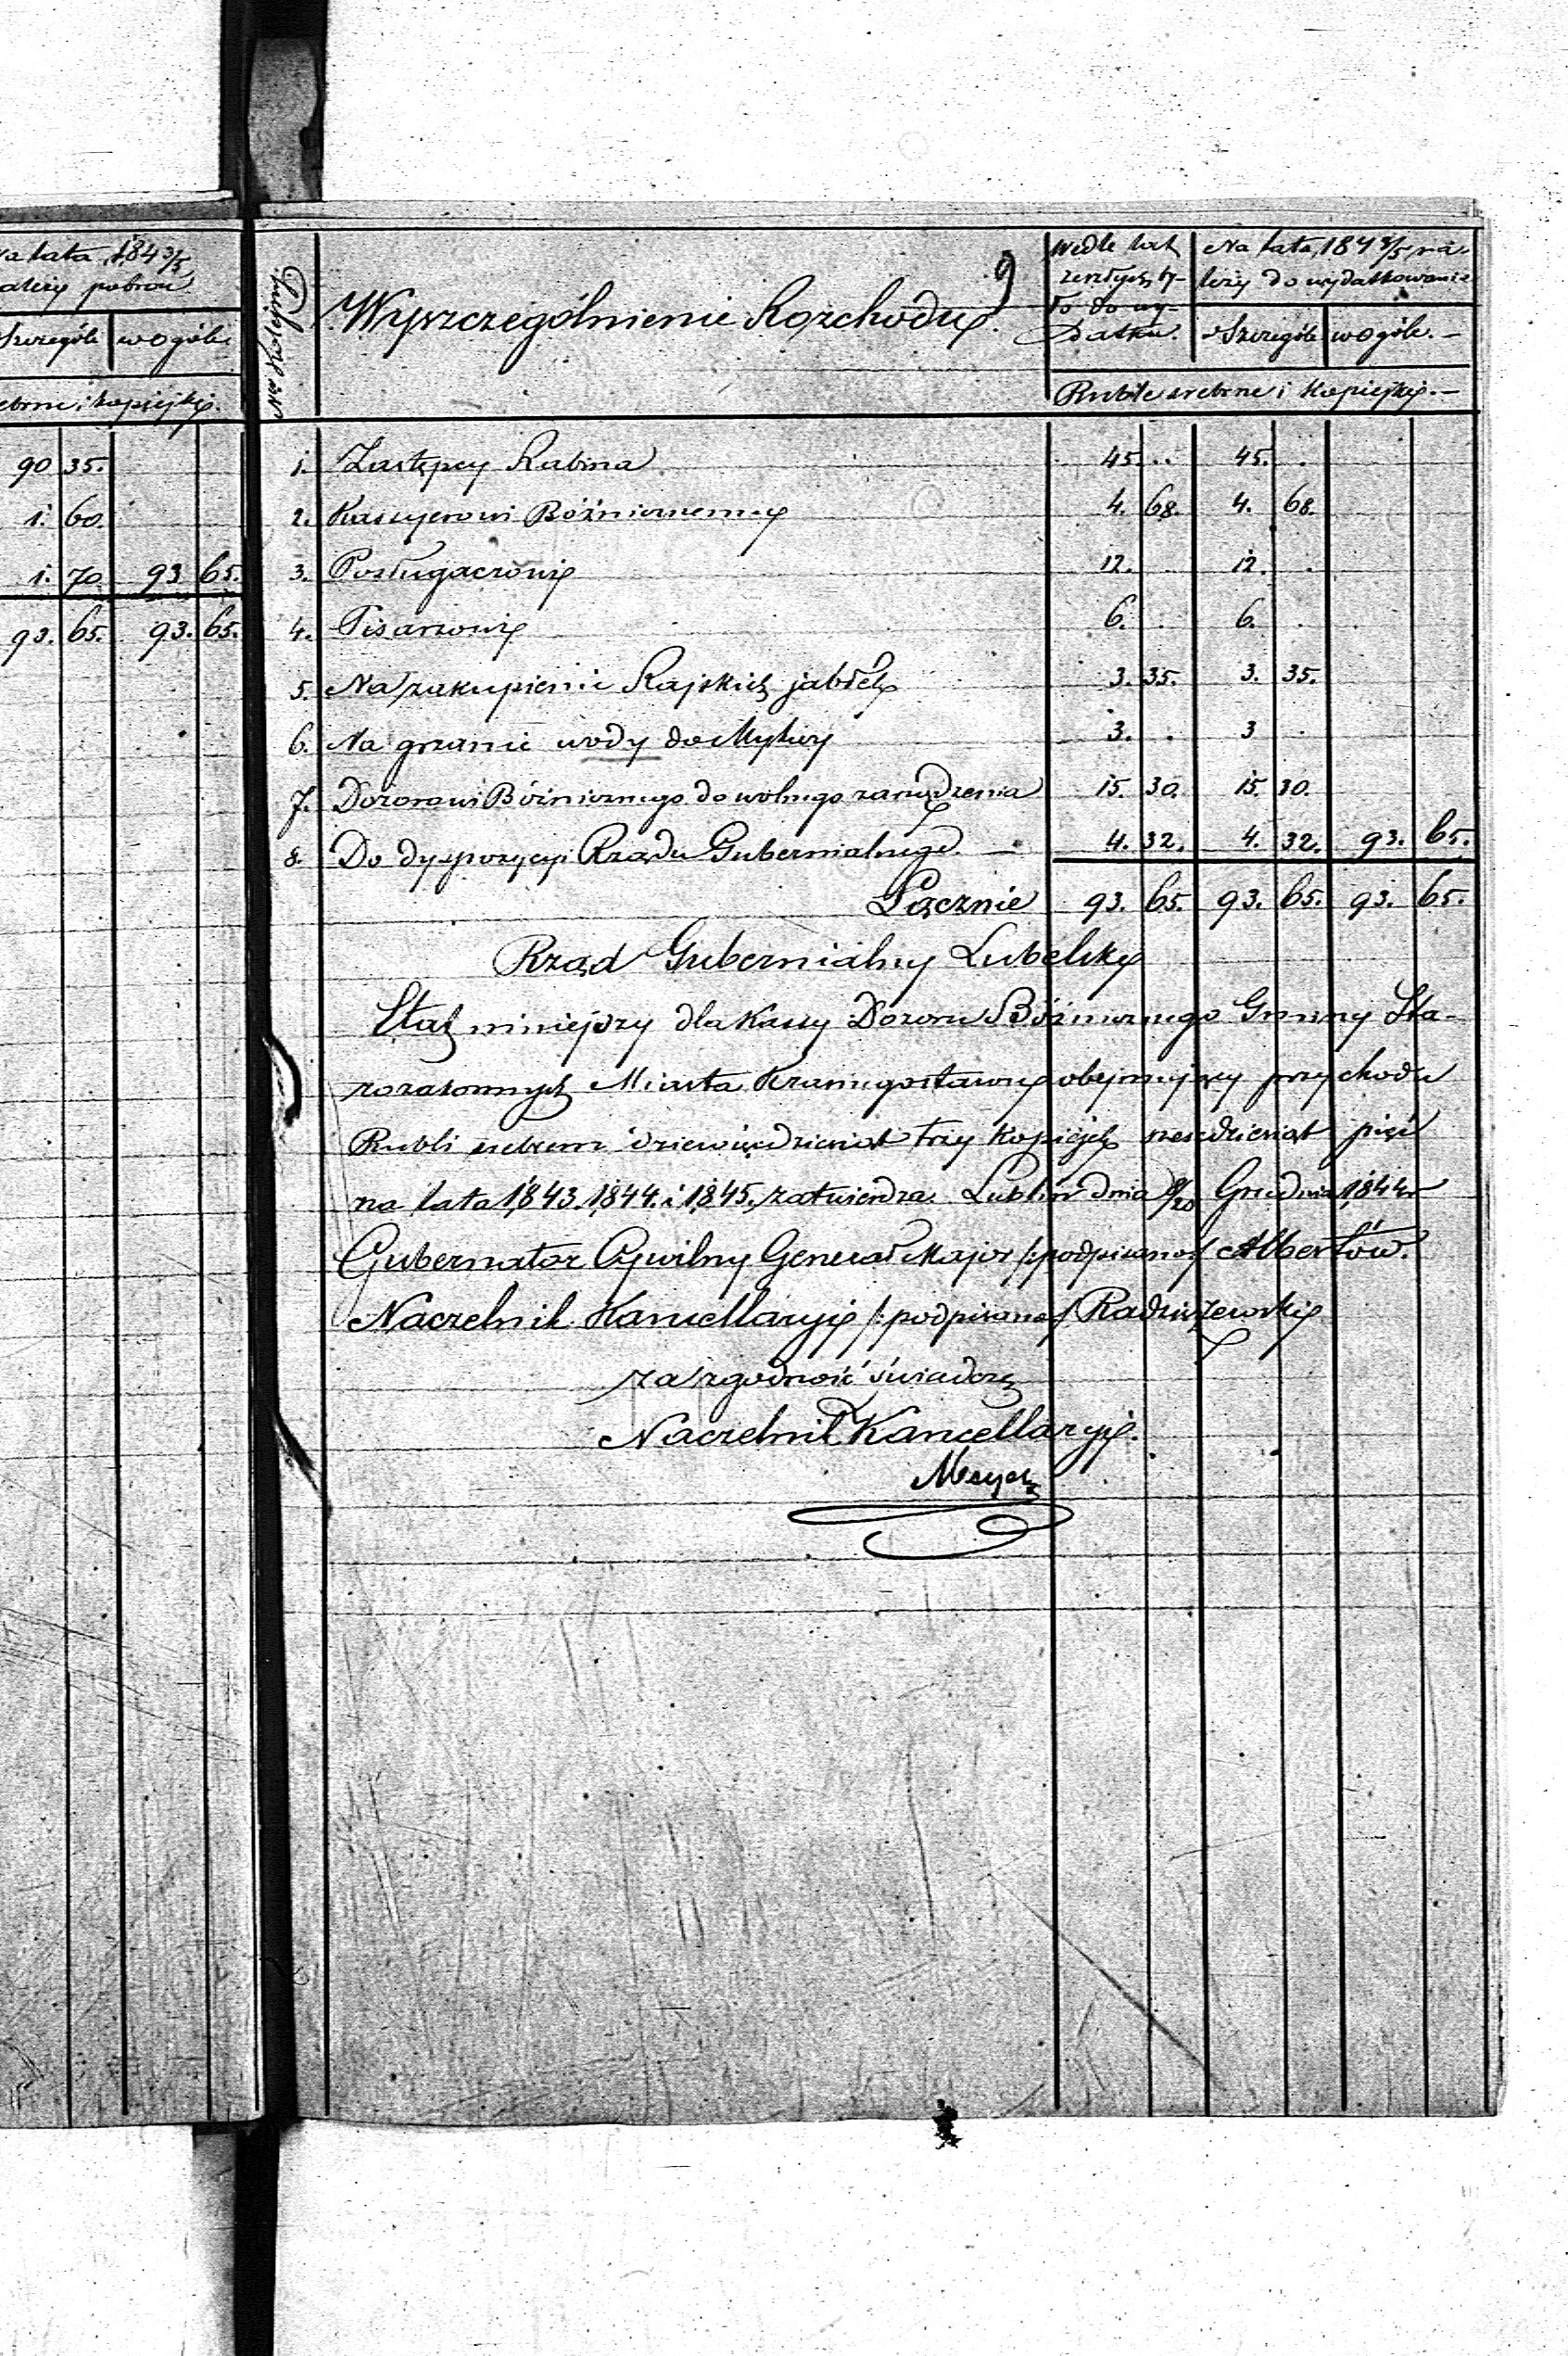 Na lata 1843/5
należy pobrać
Szczególe wogóle
srebrne i kopiejki.
90 35.
1. 60.
1. 70. 93 65.
93. 65. 93. 65.
9
No porządkowy
Wyszczególnienie Rozchodu.
Wedle lat
zeszłych by-
ło do wy-
datku.
Na lata 1843/5 na-
leży do wydatkowania
Szczególe wogóle.-
Ruble srebrne i kopiejki.-
1. Zastępcy Rabina 45. .. 45. .
2. Kassyerowi Bóżnicznemu 4. 68. 4. 68.
3. Posługaczowi 12. . 12. .
4. Pisarzowi 6. . 6. .
5. Na zakupienie Rajskich jabłek 3. 35. 3. 35.
6. Na grzanie wody do Mykwy 3. . 3 .
7. Dozorowi Bóżnicznego do wolnego zarządzenia 15. 30. 15. 30.
8. Do dyspozycyi Rządu Gubernialnego. — 4. 32. 4. 32. 93. 65.
Łącznie 93. 65. 93. 65. 93. 65.
Rząd Gubernialny Lubelski
Etat niniejszy dla Kassy Dozoru Bóżnicznego Gminy Sta-
rozakonnych Miasta Krasnegostawu obejmujący przychodu
Rubli srebrem dziewięćdziesiąt trzy Kopiejek sześćdziesiąt pięć
na lata 1843. 1844. i 1845. zatwierdza. Lublin dnia 8/20 Grudnia 1844 r
Gubernator Cywilny Generał Major /:podpisano:/ Albertów.
Naczelnik Kancellaryi /:podpisano:/ Radziszewski
za zgodność świadczę
Naczelnik Kancellaryi.